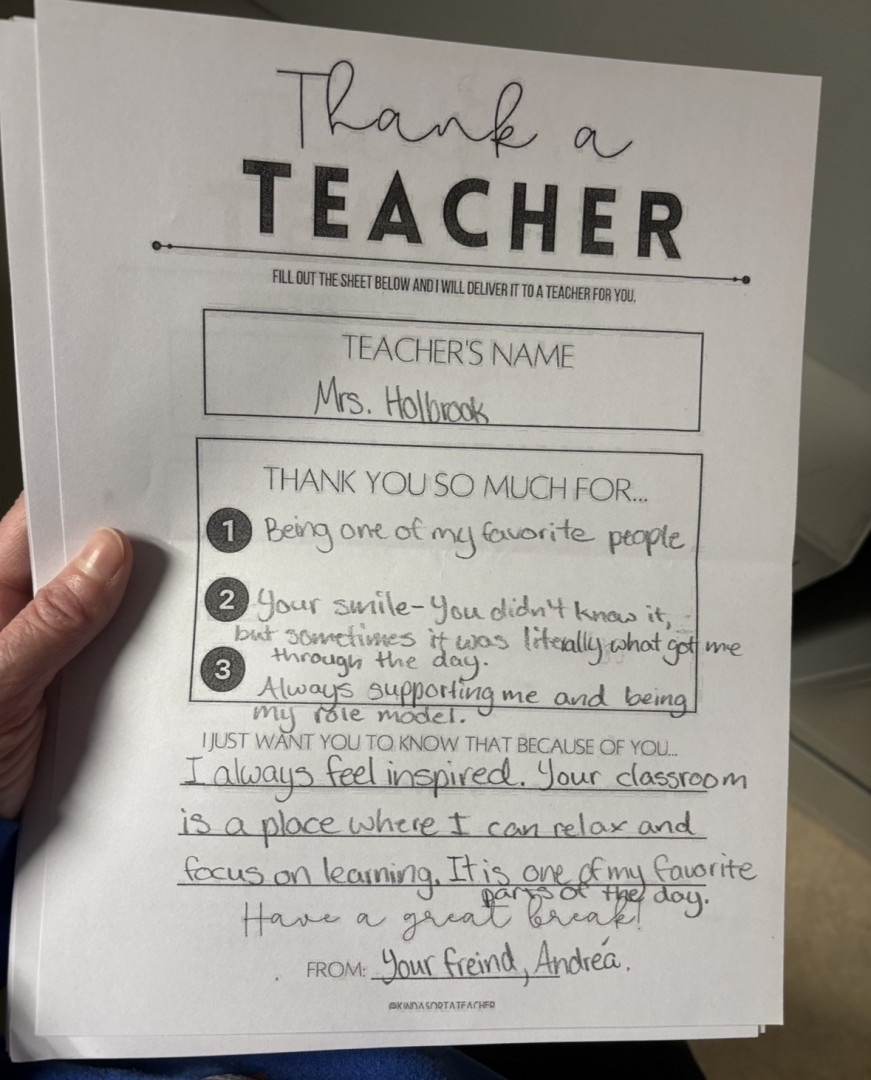 Thank a
TEACHER
FILL OUT THE SHEET BELOW AND I WILL DELIVER IT TO A TEACHER FOR YOU.
TEACHER'S NAME
Mrs. Holbrook
THANK YOU SO MUCH FOR...
1 Being one of my favorite people
2 Your smile- You didn't know it,
but sometimes it was literally what got me
through the day.
3 Always supporting me and being
my role model.
I JUST WANT YOU TO KNOW THAT BECAUSE OF YOU...
I always feel inspired. Your classroom
is a place where I can relax and
focus on learning. It is one of my favorite
parts of the day.
Have a great break!
FROM: Your freind, Andreá.
@KINDASORTATEACHER